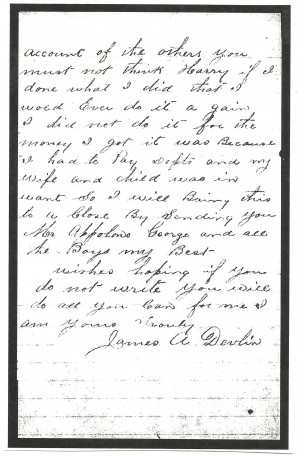 account of the others you
must not think Harry if I
done what I did that I
woed Ever do it a gain
I did not do it for the
money I got it was Because
I had to Pay Depts and my
Wife and child was in
want So I will Bring this
to a Close By Sending you
Mr Appolons George and all
the Boys my Best
wishes hoping if you
do not write you will
do all you Can for me I
am yours Trouly
James A. Devlin